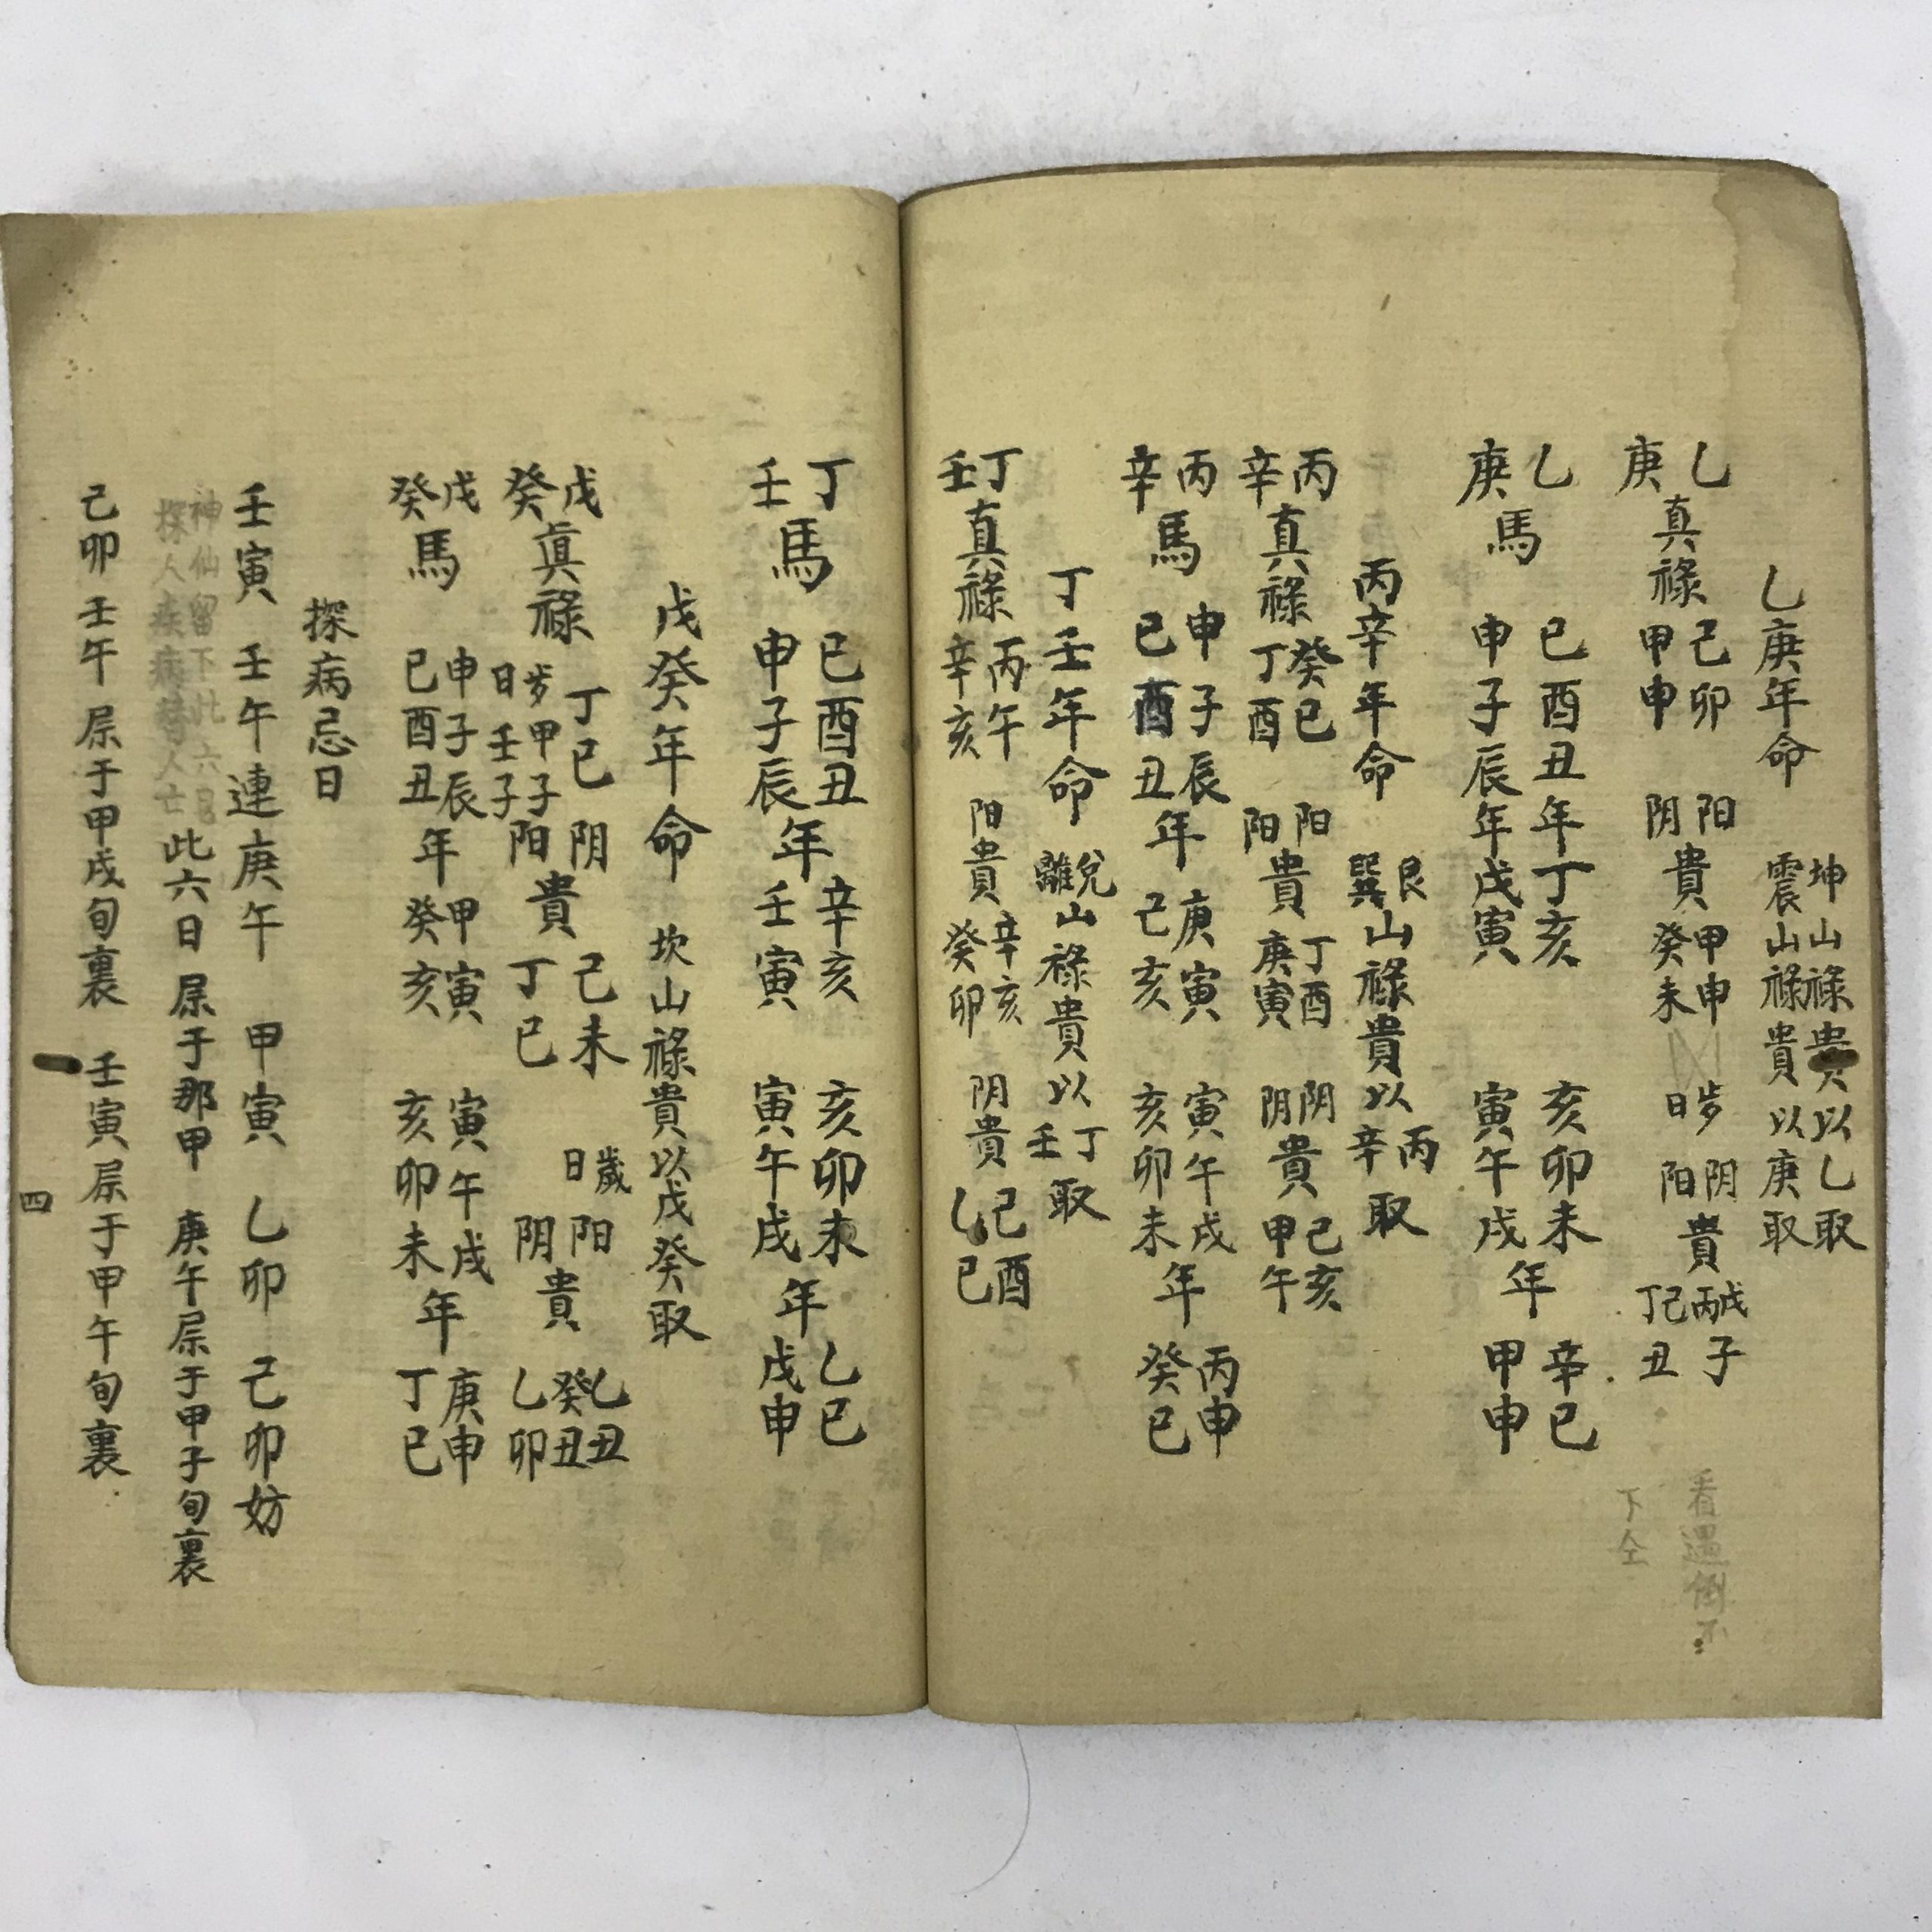 乙庚年命 坤山祿貴以乙取 震山祿貴以庚取
乙庚真祿 己卯 甲申 阳阴貴 甲申 癸未 歩日 阴阳貴 戊子 丙子 己丑 丁丑
看過倒不
下仝
乙庚馬 巳酉丑年丁亥 申子辰年戊寅 亥卯未年辛巳 寅午戌年甲申
丙辛年命 艮巽山祿貴以丙辛取
丙辛真祿 癸巳 丁酉 阳阳貴 丁酉 庚寅 阴阴貴 己亥 甲午
丙辛馬 申子辰年庚寅 巳酉丑年己亥 寅午戌年丙申 亥卯未年癸巳
丁壬年命 兌離山祿貴以丁壬取
丁壬真祿 丙午 辛亥 阳貴 辛亥 癸卯 阴貴 己酉 乙巳
丁壬馬 巳酉丑年辛亥 申子辰年壬寅 亥卯未年乙巳 寅午戌年戊申
戊癸年命 坎山祿貴以戊癸取
戊癸真祿 丁巳 歩日甲子壬子 阴阳貴 己未 丁巳 歲日 阳阴貴 乙丑 癸丑 乙卯
戊癸馬 申子辰年甲寅 巳酉丑年癸亥 寅午戌年庚申 亥卯未年丁巳
探病忌日
壬寅 壬午連庚午 甲寅 乙卯 己卯妨
神仙留下此六日
探人疾病替人亡
此六日屌于那甲 庚午屌于甲子旬裏
己卯壬午屌于甲戌旬裏 壬寅屌于甲午旬裏
四